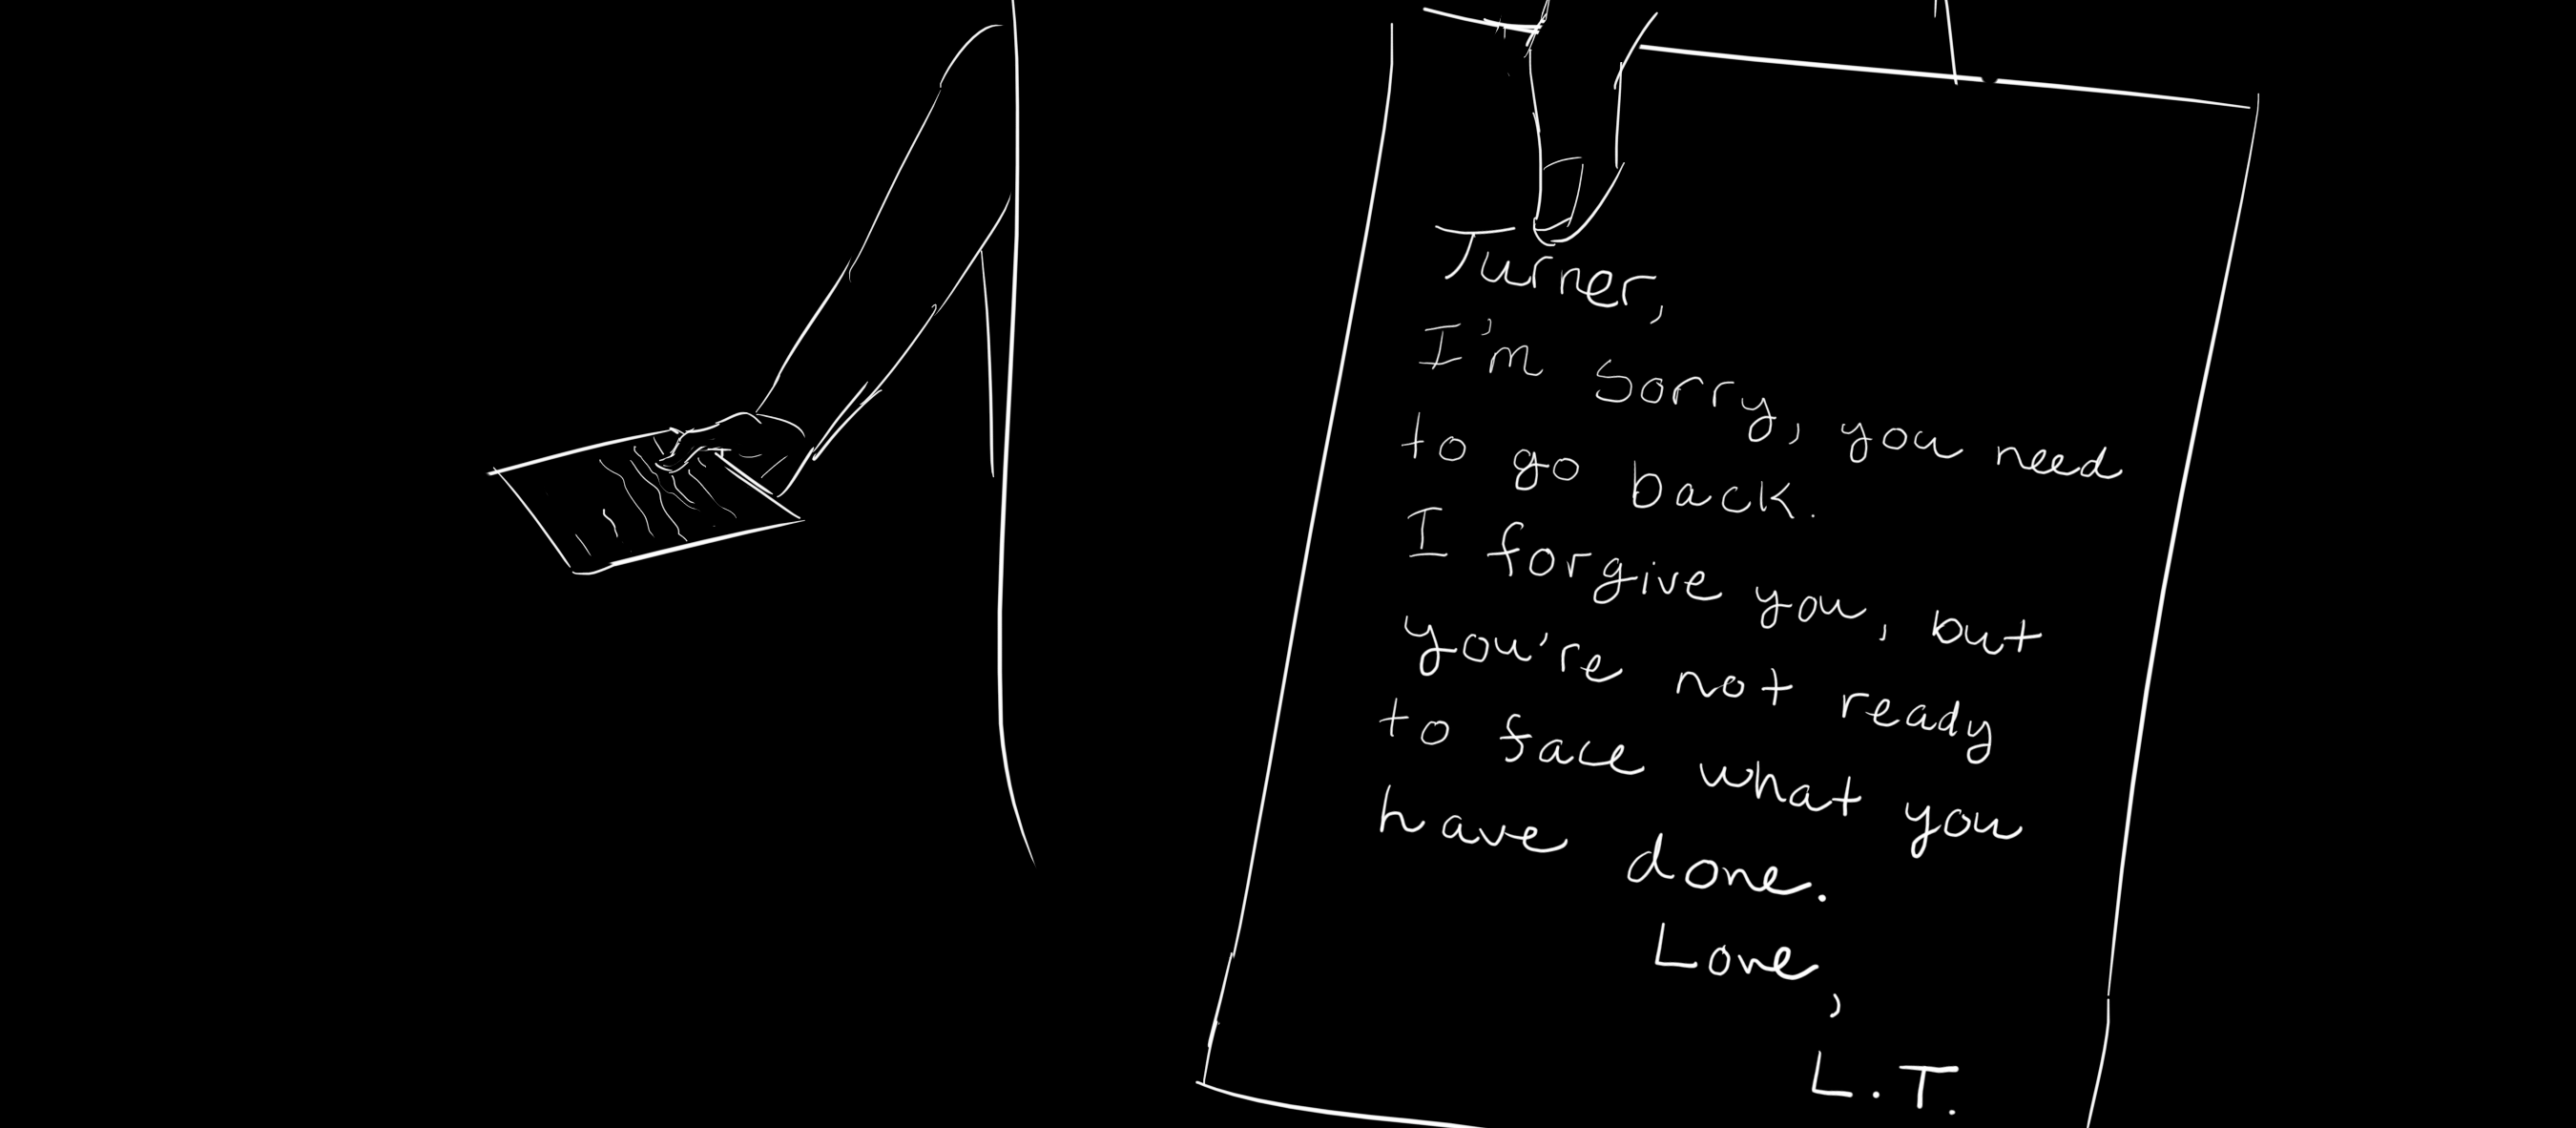 Turner,
I'm sorry, you need
to go back.
I forgive you, but
you're not ready
to face what you
have done.
Love,
L.T.